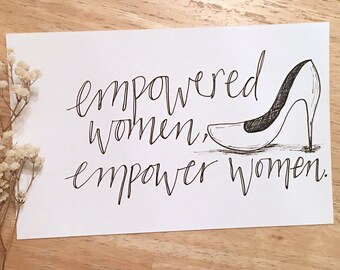 empowered
women,
empower women.